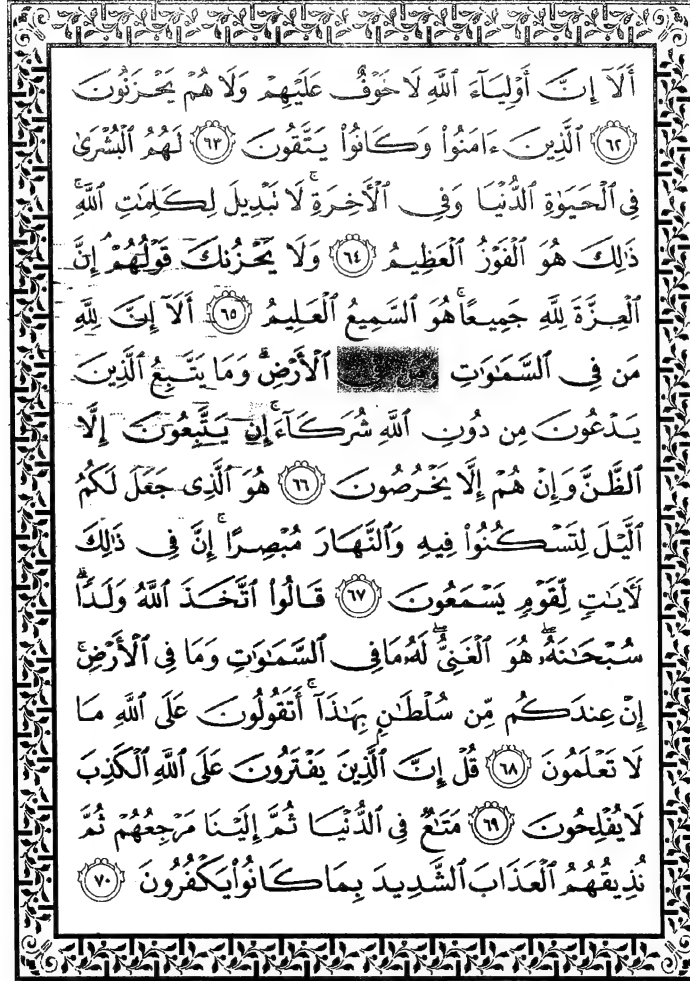 أَلَآ إِنَّ أَوْلِيَآءَ ٱللَّهِ لَا خَوْفٌ عَلَيْهِمْ وَلَا هُمْ يَحْزَنُونَ
٦٢ ٱلَّذِينَ ءَامَنُوا۟ وَكَانُوا۟ يَتَّقُونَ ٦٣ لَهُمُ ٱلْبُشْرَىٰ
فِى ٱلْحَيَوٰةِ ٱلدُّنْيَا وَفِى ٱلْأَخِرَةِ ۚ لَا نَبْدِيلَ لِكَلِمَٰتِ ٱللَّهِ ۚ
ذَٰلِكَ هُوَ ٱلْفَوْزُ ٱلْعَظِيمُ ٦٤ وَلَا يَحْزُنكَ قَوْلُهُمْ ۘ إِنَّ
ٱلْعِزَّةَ لِلَّهِ جَمِيعًا ۚ هُوَ ٱلسَّمِيعُ ٱلْعَلِيمُ ٦٥ أَلَآ إِنَّ لِلَّهِ
مَن فِى ٱلسَّمَٰوَٰتِ وَمَن فِى ٱلْأَرْضِ ۗ وَمَا يَتَّبِعُ ٱلَّذِينَ
يَدْعُونَ مِن دُونِ ٱللَّهِ شُرَكَآءَ ۚ إِن يَتَّبِعُونَ إِلَّا
ٱلظَّنَّ وَإِنْ هُمْ إِلَّا يَخْرُصُونَ ٦٦ هُوَ ٱلَّذِى جَعَلَ لَكُمُ
ٱلَّيْلَ لِتَسْكُنُوا۟ فِيهِ وَٱلنَّهَارَ مُبْصِرًا ۚ إِنَّ فِى ذَٰلِكَ
لَأَيَٰتٍ لِّقَوْمٍ يَسْمَعُونَ ٦٧ قَالُوا۟ ٱتَّخَذَ ٱللَّهُ وَلَدًا ۗ
سُبْحَٰنَهُۥ ۖ هُوَ ٱلْغَنِىُّ ۖ لَهُۥ مَا فِى ٱلسَّمَٰوَٰتِ وَمَا فِى ٱلْأَرْضِ ۚ
إِنْ عِندَكُم مِّن سُلْطَٰنٍۭ بِهَٰذَآ ۚ أَتَقُولُونَ عَلَى ٱللَّهِ مَا
لَا تَعْلَمُونَ ٦٨ قُلْ إِنَّ ٱلَّذِينَ يَفْتَرُونَ عَلَى ٱللَّهِ ٱلْكَذِبَ
لَا يُفْلِحُونَ ٦٩ مَتَٰعٌ فِى ٱلدُّنْيَا ثُمَّ إِلَيْنَا مَرْجِعُهُمْ ثُمَّ
نُذِيقُهُمُ ٱلْعَذَابَ ٱلشَّدِيدَ بِمَا كَانُوا۟ يَكْفُرُونَ ٧٠